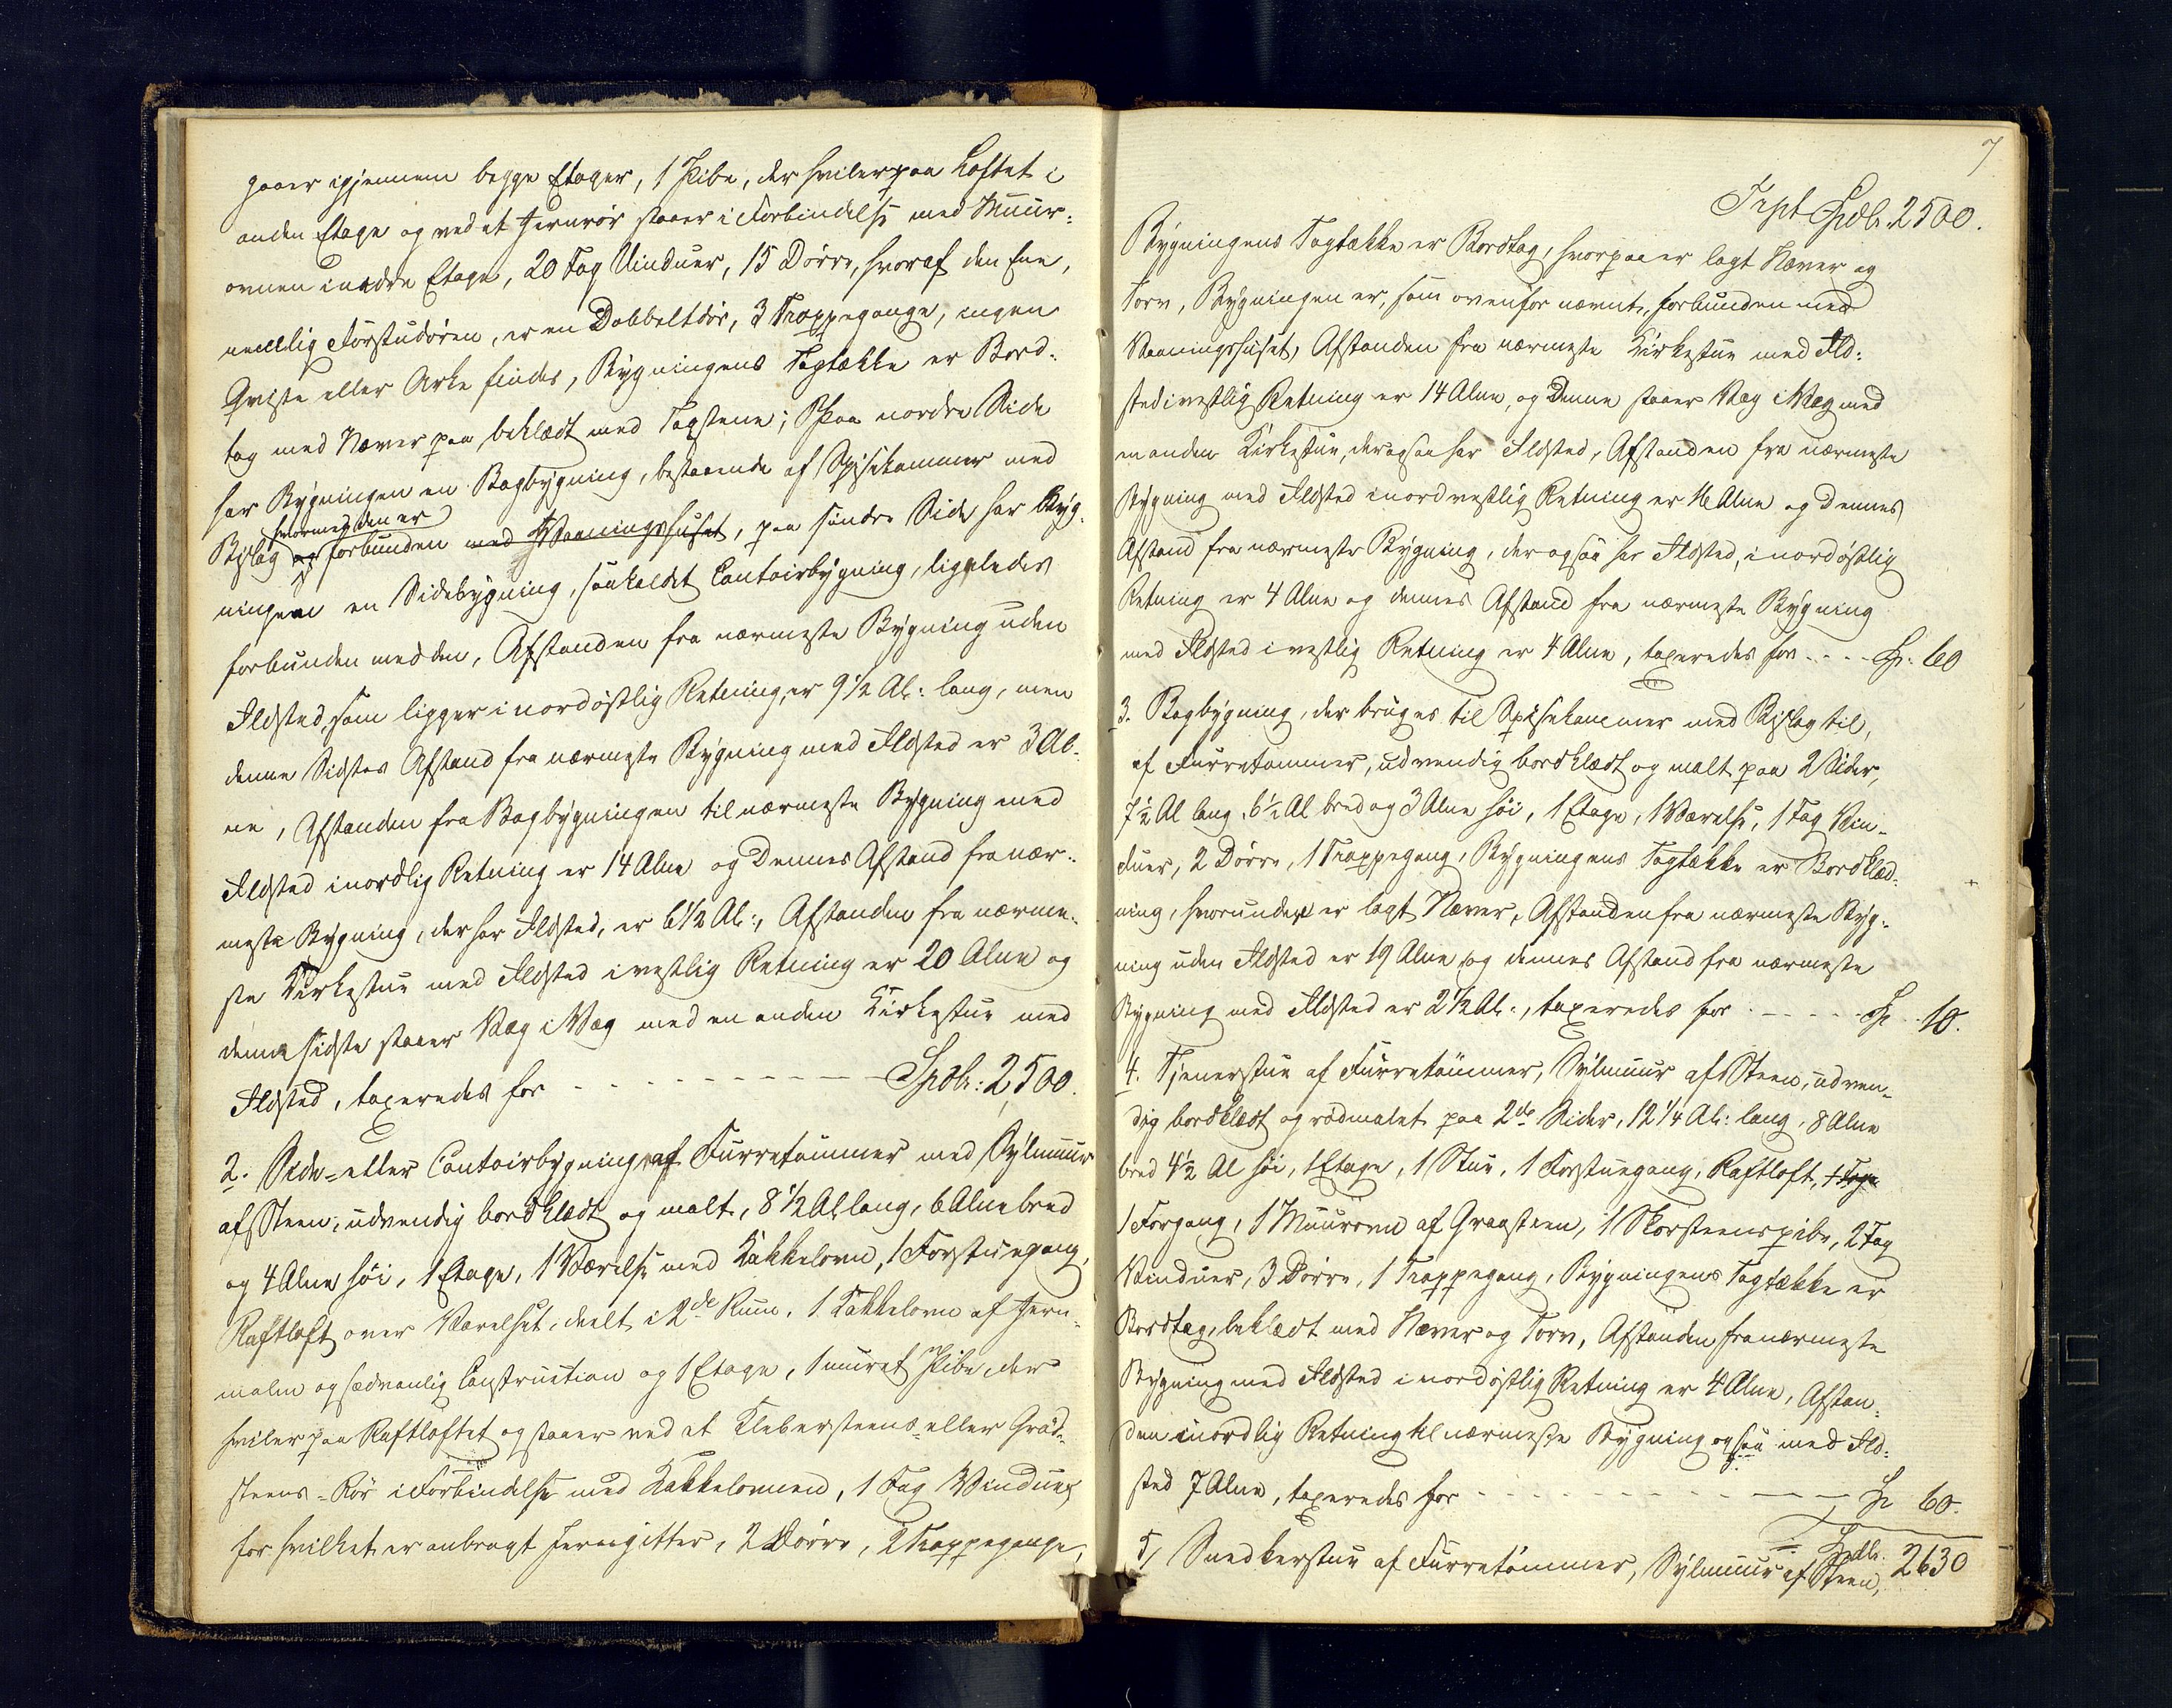 gaaer igjennem begge Etager, 1 Pibe, der hviler paa Loftet i
anden Etage og ved et Jernrør staaer i Forbindelse med Muur-
ovnen i nedre Etage, 20 Fag Vinduer, 15 Dørre, hvoraf den Ene,
nemlig Forstudøren, er en Dobbeltdør, 3 Trappegange, ingen
Qviste eller Arke findes, Bygningens Tagtække er Bord-
tag med Næver paa, beklædt med Tagsteene; Paa nordre Side
har Bygningen en Bagbygning, bestaaende af Spisekammer med
hvormed den er
Bislag og forbunden med Vaaningshuset, paa søndre Side har Byg-
ningen en Sidebygning, saakaldet Contoirbygning, ligeledes
forbunden med den, Afstanden fra nærmeste Bygning uden
Ildsted, som ligger i nordøstlig Retning, er 9 1/2 Al: lang, men
denne Sidstes Afstand fra nærmeste Bygning med Ildsted er 3 Al-
ne, Afstanden fra Bagbygningen til nærmeste Bygning med
Ildsted i nordlig Retning er 14 Alne og Dennes Afstand fra nær-
meste Bygning, der har Ildsted, er 6 1/2 Al:, Afstanden fra nærme-
ste Kirkestue med Ildsted i vestlig Retning er 20 Alne og
denne sidste staaer Væg i Væg med en anden Kirkestue med
Ildsted, taxeredes for - - - - - - - - - - Spdlr: 2,500.
2. Side- eller Contoirbygning af Furretømmer med Sylmuur
af Steen, udvendig bordklædt og malt, 8 1/2 Al. lang, 6 Alne bred
og 4 Alne høi, 1 Etage, 1 Værelse med Kakkelovn, 1 Forstuegang,
Raftloft over Værelset, deelt i 2de Rum, 1 Kakkelovn af Jern-
malm og sædvanlig Construction og 1 Etage, 1 muret Pibe, der
hviler paa Raftloftet og staaer ved et Klebersteens- eller Gryd-
steens-Rør i Forbindelse med Kakkelovnen, 1 Fag Vinduer,
for hvilket er anbragt Jerngitter, 2 Dørre, 2 Trappegange,
7
Trspt Spdlr. 2500.
Bygningens Tagtække er Bordtag, hvorpaa er lagt Næver og
Torv, Bygningen er, som ovenfor nævnt, forbunden med
Vaaningshuset, Afstanden fra nærmeste Kirkestue med Ild-
sted i vestlig Retning er 14 Alne, og Denne staaer Væg i Væg med
en anden Kirkestue, der ogsaa har Ildsted, Afstanden fra nærmeste
Bygning med Ildsted i nordvestlig Retning er 16 Alne og Dennes
Afstand fra nærmeste Bygning, der ogsaa har Ildsted, i nordøstlig
Retning er 4 Alne og dennes Afstand fra nærmeste Bygning
med Ildsted i vestlig Retning er 4 Alne, taxeredes for - - - - Sp: 60
3. Bagbygning, der bruges til Spisekammer med Bislag til,
af Furretømmer, udvendig bordklædt og malt paa 2 Sider,
7 1/2 Al lang, 6 1/2 Al bred og 3 Alne høi, 1 Etage, 1 Værelse, 1 Fag Vin-
duer, 2 Dørre, 1 Trappegang, Bygningens Tagtække er Bordklæd-
ning, hvorunder er lagt Næver, Afstanden fra nærmeste Byg-
ning uden Ildsted er 19 Alne og dennes Afstand fra nærmeste
Bygning med Ildsted er 2 1/2 Al:, taxeredes for - - - - - Sp 10.
4. Tjenerstue af Furretømmer, Sylmuur af Steen, udven-
dig bordklædt og rødmalet paa 2de Sider, 12 1/4 Al: lang, 8 Alne
bred 4 1/2 Al høi, 1 Etage, 1 Stue, 1 Forstuegang, Raftloft,
1 Forgang, 1 Muurovn af Graasteen, 1 Skorsteenspibe, 2 Fag
Vinduer, 3 Dørre, 1 Trappegang, Bygningens Tagtække er
Bordtag, beklædt med Næver og Torv, Afstanden fra nærmeste
Bygning med Ildsted i nordøstlig Retning er 4 Alne, Afstan-
den i nordlig Retning til nærmeste Bygning ogsaa med Ild-
sted 7 Alne, taxeredes for - - - - - - - - - - Sp 60.
5, Snedkerstue af Furretømmer, Sylmuur af Steen,
Spdlr. 2630